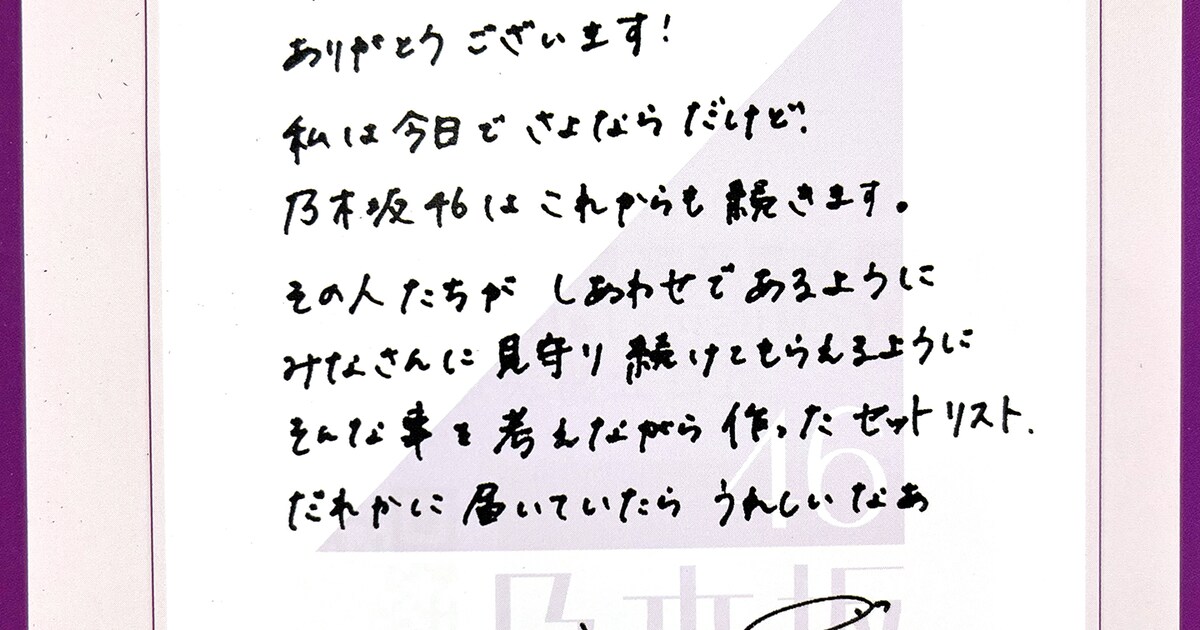 ありがとうございます!
私は今日でさよならだけど、
乃木坂46はこれからも続きます。
その人たちが しあわせであるように
みなさんに見守り続けてもらえるように
そんな事を考えながら作ったセットリスト.
だれかに届いていたら うれしいなあ
46
乃木坂